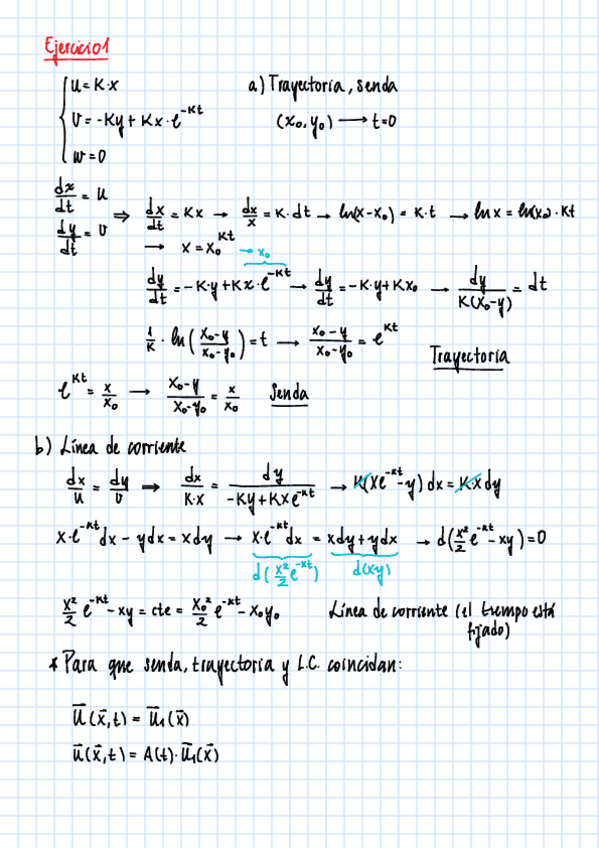 Ejercicio 1
u = K·x
a) Trayectoria, senda
v = -Ky + Kx·e^-Kt
(x₀, y₀) ⟶ t=0
w = 0
dx/dt = u
dy/dt = v
⇒ dx/dt = Kx → dx/x = K·dt → ln(x-x₀) = K·t → ln x = ln(x₀)·Kt
→ x = x₀^Kt
→ x₀
dy/dt = -K·y + Kx·e^-Kt → dy/dt = -K·y + Kx₀ → dy/K(x₀-y) = dt
1/K · ln(x₀-y/x₀-y₀) = t → x₀-y/x₀-y₀ = e^Kt
Trayectoria
e^Kt = x/x₀ → x₀-y/x₀-y₀ = x/x₀ Senda
b) Línea de corriente
dx/u = dy/v → dx/K·x = dy/-Ky + Kxe^-Kt → K(xe^-Kt - y) dx = Kx dy
x·e^-Kt dx - ydx = xdy → x·e^-Kt dx = xdy + ydx → d(x²/2 e^-Kt - xy) = 0
d(x²/2 e^-Kt) d(xy)
x²/2 e^-Kt - xy = cte = x₀²/2 e^-Kt - x₀y₀ Línea de corriente (el tiempo está
fijado)
* Para que senda, trayectoria y L.C. coincidan:
u⃗(x⃗,t) = u⃗₁(x⃗)
u⃗(x⃗,t) = A(t)·u⃗₁(x⃗)